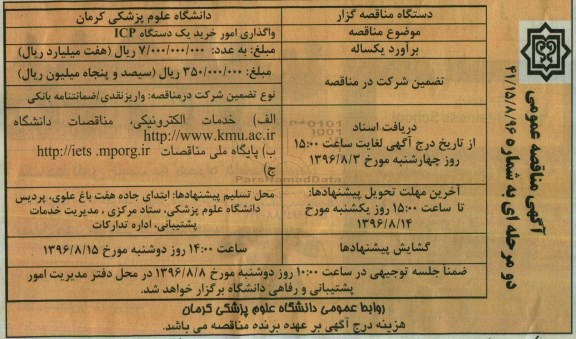 آگهی مناقصه عمومی
دو مرحله ای به شماره ۴۱/۱۵/۸/۹۶
دستگاه مناقصه گزار
دانشگاه علوم پزشکی کرمان
موضوع مناقصه
واگذاری امور خرید یک دستگاه ICP
برآورد یکساله
مبلغ: به عدد: ۷/۰۰۰/۰۰۰/۰۰۰ ریال (هفت میلیارد ریال)
تضمین شرکت در مناقصه
مبلغ: ۳۵۰/۰۰۰/۰۰۰ ریال (سیصد و پنجاه میلیون ریال)
نوع تضمین شرکت درمناقصه: واریزنقدی/ضمانتنامه بانکی
دریافت اسناد
از تاریخ درج آگهی لغایت ساعت ۱۵:۰۰
روز چهارشنبه مورخ ۱۳۹۶/۸/۳
الف) خدمات الکترونیکی، مناقصات دانشگاه
http://www.kmu.ac.ir
ب) پایگاه ملی مناقصات http://iets .mporg.ir
ج)
آخرین مهلت تحویل پیشنهادها:
تا ساعت ۱۵:۰۰ روز یکشنبه مورخ
۱۳۹۶/۸/۱۴
محل تسلیم پیشنهادها: ابتدای جاده هفت باغ علوی، پردیس
دانشگاه علوم پزشکی، ستاد مرکزی ، مدیریت خدمات
پشتیبانی، اداره تدارکات
گشایش پیشنهادها
ساعت ۱۴:۰۰ روز دوشنبه مورخ ۱۳۹۶/۸/۱۵
ضمنا جلسه توجیهی در ساعت ۱۰:۰۰ روز دوشنبه مورخ ۱۳۹۶/۸/۸ در محل دفتر مدیریت امور
پشتیبانی و رفاهی دانشگاه برگزار خواهد شد.
روابط عمومی دانشگاه علوم پزشکی کرمان
هزینه درج آگهی بر عهده برنده مناقصه می باشد.